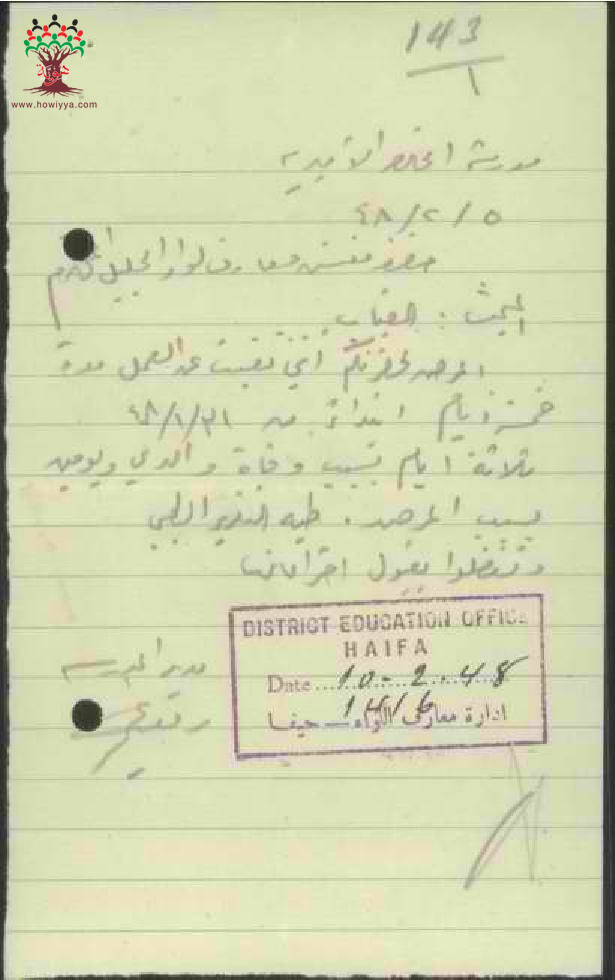 www.howiyya.com
143
١
مدرسة الاميرية
٤٨/٢/٥
حضرة مفتش معارف لواء الجليل المحترم
المبحث : الغياب
اعرض لحضرتكم أنني تغيبت عن العمل مدة
خمسة ايام ابتداءً من ٤٨/١/٣١
ثلاثة ايام بسبب وفاة والدي ويومين
بسبب المرض . طيه التقرير الطبي
وتفضلوا بقبول احتراماتنا
DISTRICT EDUCATION OFFICE
HAIFA
Date 10-2-48
ادارة معارف اللواء — حيفا
مدير المدرسة